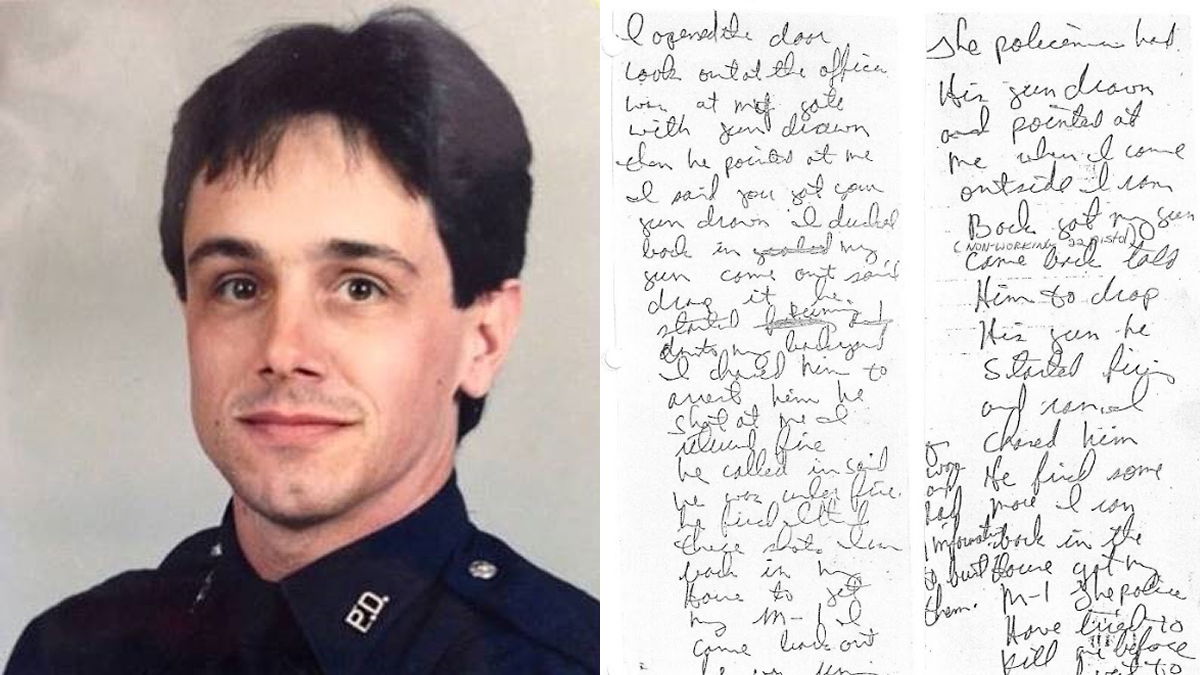 P.D.
I opened the door
look out at the office
was at my gate
with gun drawn
then he pointed at me
I said you got your
gun drawn I ducked
back in my
gun come out said
drop it he
started and
my backyard
I chased him to
arrest him he
shot at me I
return fire
he called in said
he was under fire.
he fired
these shots I ran
back in my
House to get
my M-1 I
came back out
The policeman had
His gun drawn
and pointed at
me when I came
outside I ran
Back got my gun
(NON-WORKING 22 PISTOL)
came back told
Him to drop
His gun he
started firing
and ran, I
chased him
He fired some
more I ran
back in the
House got my
M-1 The police
Have tried to
kill me before
I to
was
and
had
information
to hurt
them.